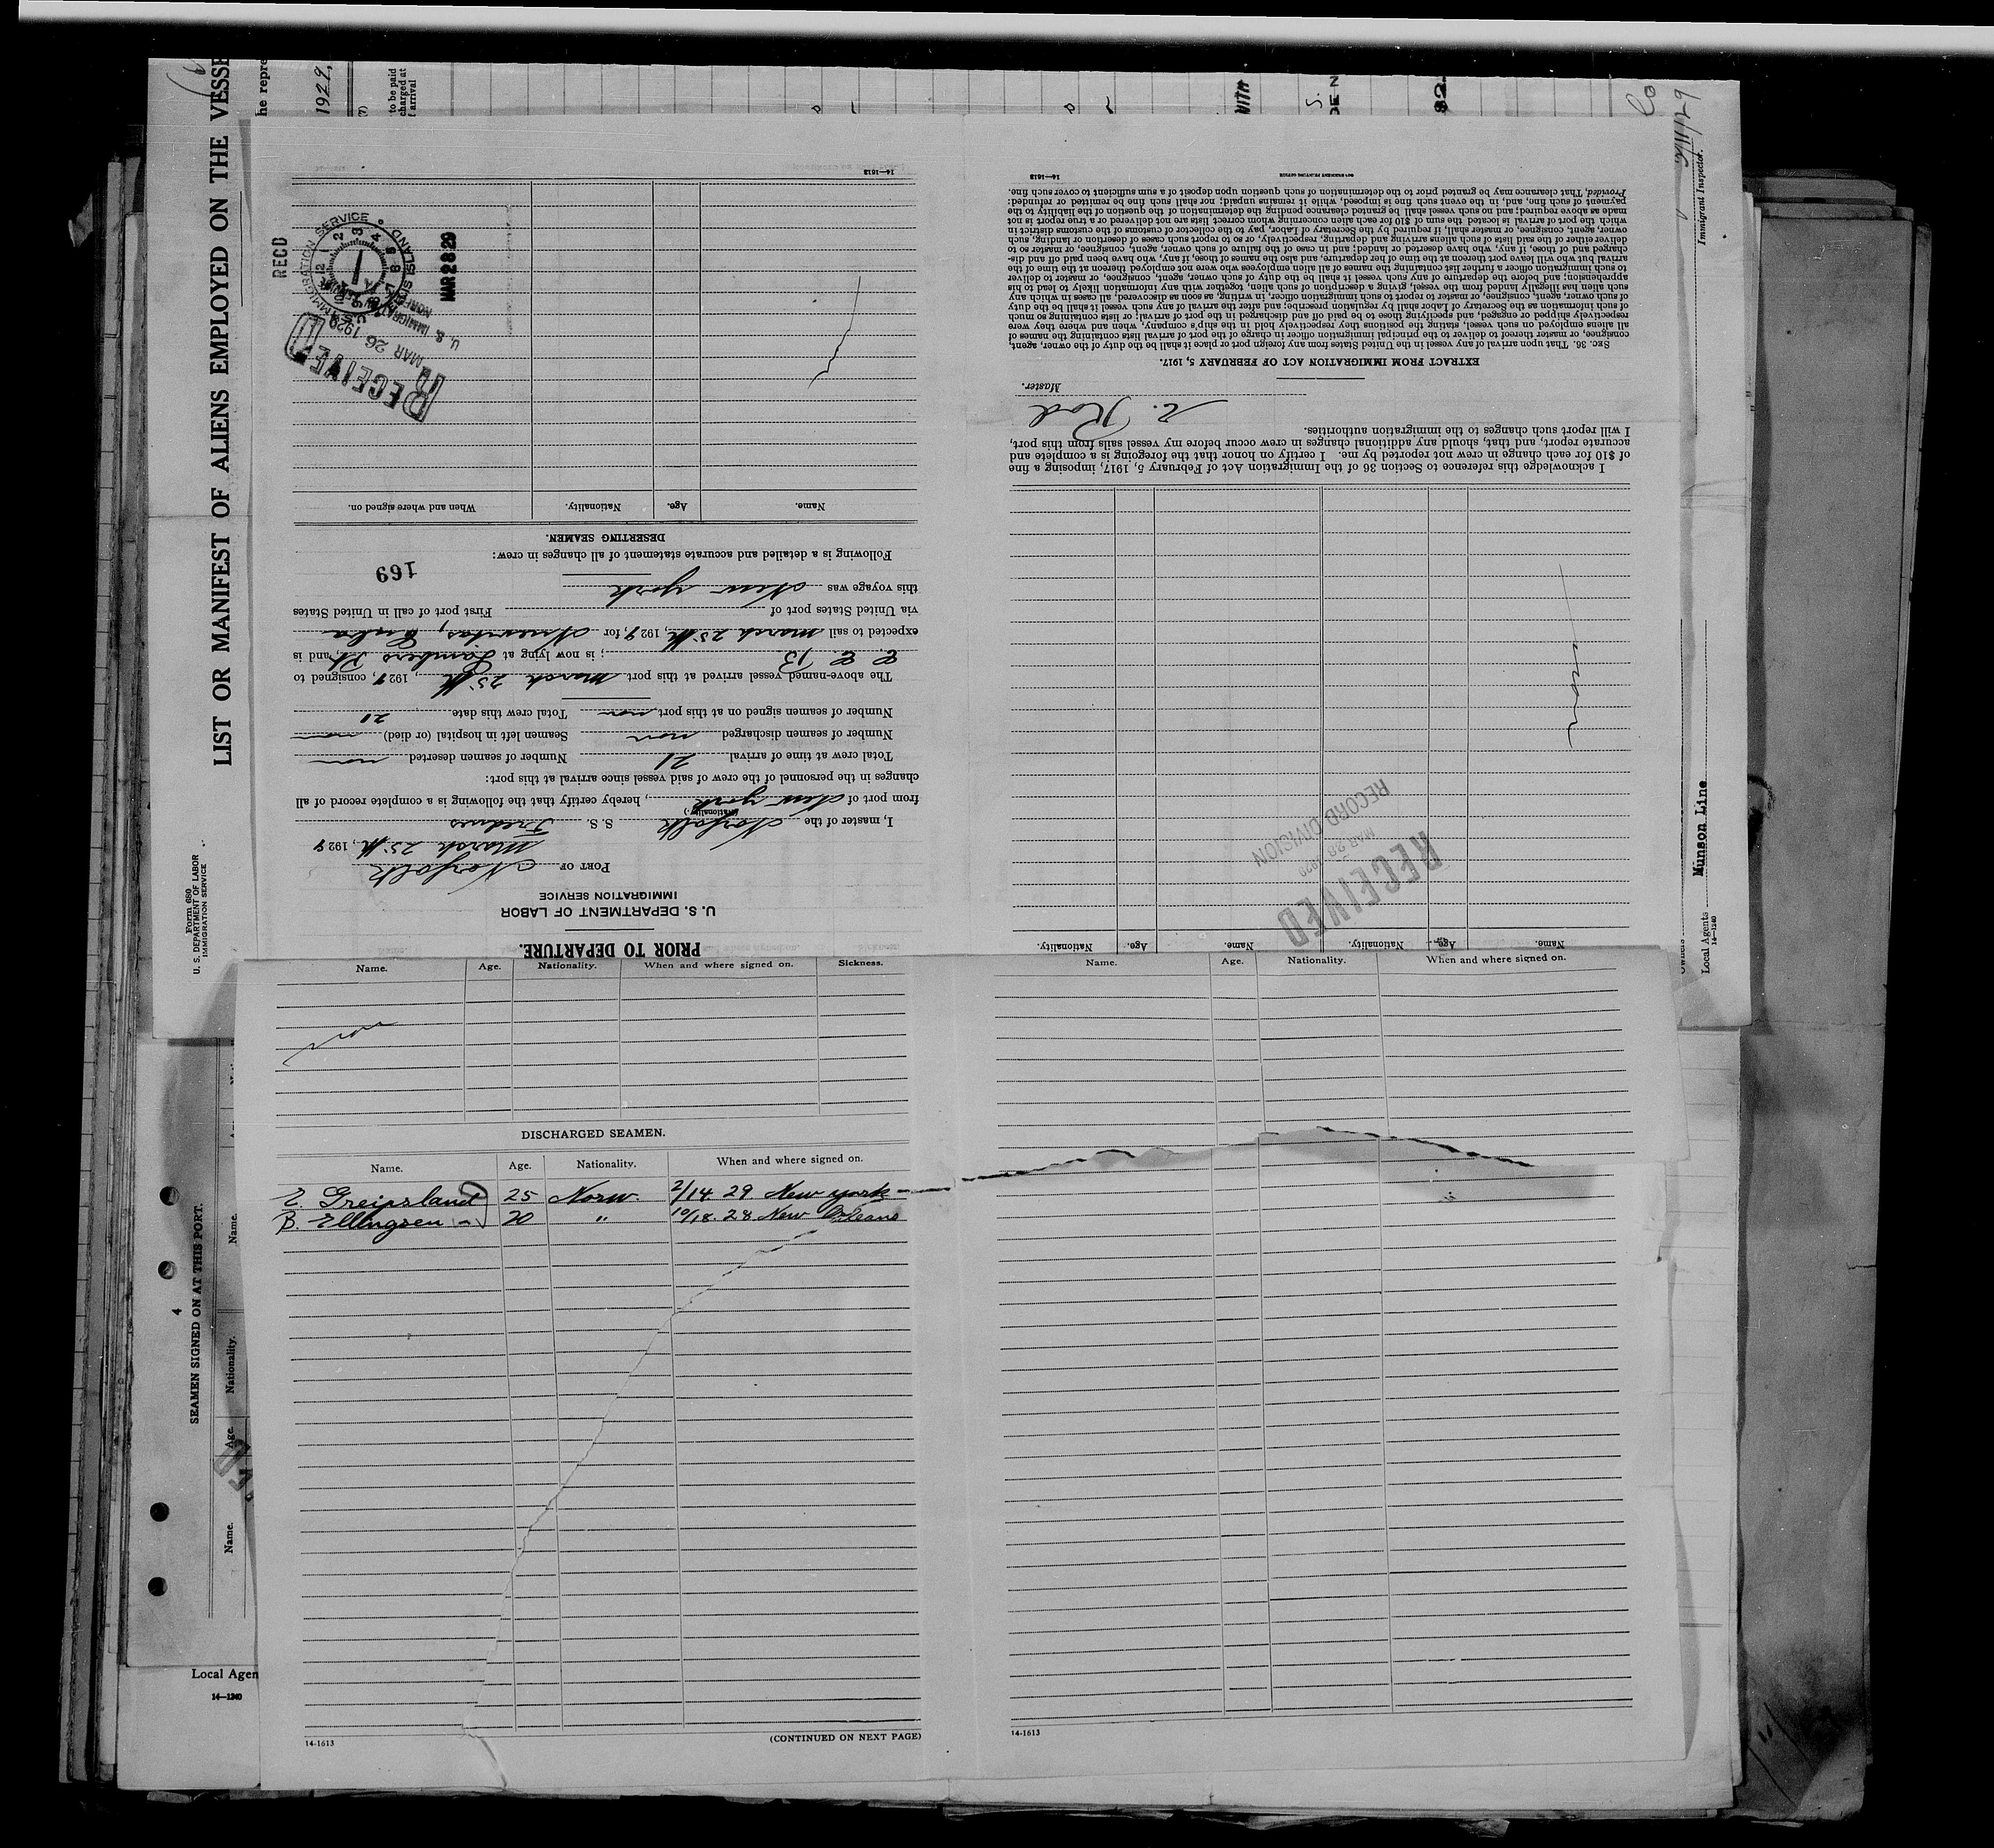 PRIOR TO DEPARTURE.
U. S. DEPARTMENT OF LABOR
IMMIGRATION SERVICE
PORT OF Norfolk
March 25th, 1929
I, master of the Norfolk S. S.
(Nationality.)
from port of New york, hereby certify that the following is a complete record of all
changes in the personnel of the crew of said vessel since arrival at this port:
Total crew at time of arrival 21 Number of seamen deserted non
Number of seamen discharged non Seamen left in hospital (or died) non
Number of seamen signed on at this port non Total crew this date 21
The above-named vessel arrived at this port March 25th, 1929, consigned to
; is now lying at Lamberts Pt, and is
expected to sail March 25th, 1929, for Nuevitas, Cuba
via United States port of First port of call in United States
this voyage was New york
Following is a detailed and accurate statement of all changes in crew:
169
DESERTING SEAMEN.
Name. Age. Nationality. When and where signed on.
14—1613
RECD
IMMIGRATION SERVICE
ELLIS ISLAND
MAR 28 29
RECEIVED
MAR 26 1929
U. S. IMMIGRATION
Name. Age. Nationality. Name. Age. Nationality.
RECEIVED
MAR 28 1929
RECORD DIVISION
I acknowledge this reference to Section 36 of the Immigration Act of February 5, 1917, imposing a fine
of $10 for each change in crew not reported by me. I certify on honor that the foregoing is a complete and
accurate report, and that, should any additional changes in crew occur before my vessel sails from this port,
I will report such changes to the immigration authorities.
Master.
EXTRACT FROM IMMIGRATION ACT OF FEBRUARY 5, 1917.
SEC. 36. That upon arrival of any vessel in the United States from any foreign port or place it shall be the duty of the owner, agent,
consignee, or master thereof to deliver to the principal immigration officer in charge of the port of arrival lists containing the names of
all aliens employed on such vessel, stating the positions they respectively hold in the ship's company, when and where they were
respectively shipped or engaged, and specifying those to be paid off and discharged in the port of arrival; or lists containing so much
of such information as the Secretary of Labor shall by regulation prescribe; and after the arrival of any such vessel it shall be the duty
of such owner, agent, consignee, or master to report to such immigration officer, in writing, as soon as discovered, all cases in which any
such alien has illegally landed from the vessel, giving a description of such alien, together with any information likely to lead to his
apprehension; and before the departure of any such vessel it shall be the duty of such owner, agent, consignee, or master to deliver
to such immigration officer a further list containing the names of all alien employees who were not employed thereon at the time of the
arrival but who will leave port thereon at the time of her departure, and also the names of those, if any, who have been paid off and dis-
charged and of those, if any, who have deserted or landed; and in case of the failure of such owner, agent, consignee, or master so to
deliver either of the said lists of such aliens arriving and departing, respectively, or so to report such cases of desertion or landing, such
owner, agent, consignee, or master, shall, if required by the Secretary of Labor, pay to the collector of customs of the customs district in
which the port of arrival is located the sum of $10 for each alien concerning whom correct lists are not delivered or a true report is not
made as above required; and no such vessel shall be granted clearance pending the determination of the question of the liability to the
payment of such fine, and, in the event such fine is imposed, while it remains unpaid; nor shall such fine be remitted or refunded:
Provided, That clearance may be granted prior to the determination of such question upon deposit of a sum sufficient to cover such fine.
GOVERNMENT PRINTING OFFICE
14—1613
Name. Age. Nationality. When and where signed on. Sickness.
non
DISCHARGED SEAMEN.
Name. Age. Nationality. When and where signed on.
E. Greipsland 25 Norw. 2/14 29 New york
B. Ellingsen 20 " 10/18. 28 New Orleans
14-1613
(CONTINUED ON NEXT PAGE)
Name. Age. Nationality. When and where signed on.
14-1613
LIST OR MANIFEST OF ALIENS EMPLOYED ON THE VESSE
Form 680
U. S. DEPARTMENT OF LABOR
IMMIGRATION SERVICE
he repre
1929,
(7)
to be paid
charged at
f arrival
4
SEAMEN SIGNED ON AT THIS PORT.
Name. Age. Nationality. Name.
Local Agen
14—1240
Immigrant Inspector.
Local Agents Munson Line
14—1240